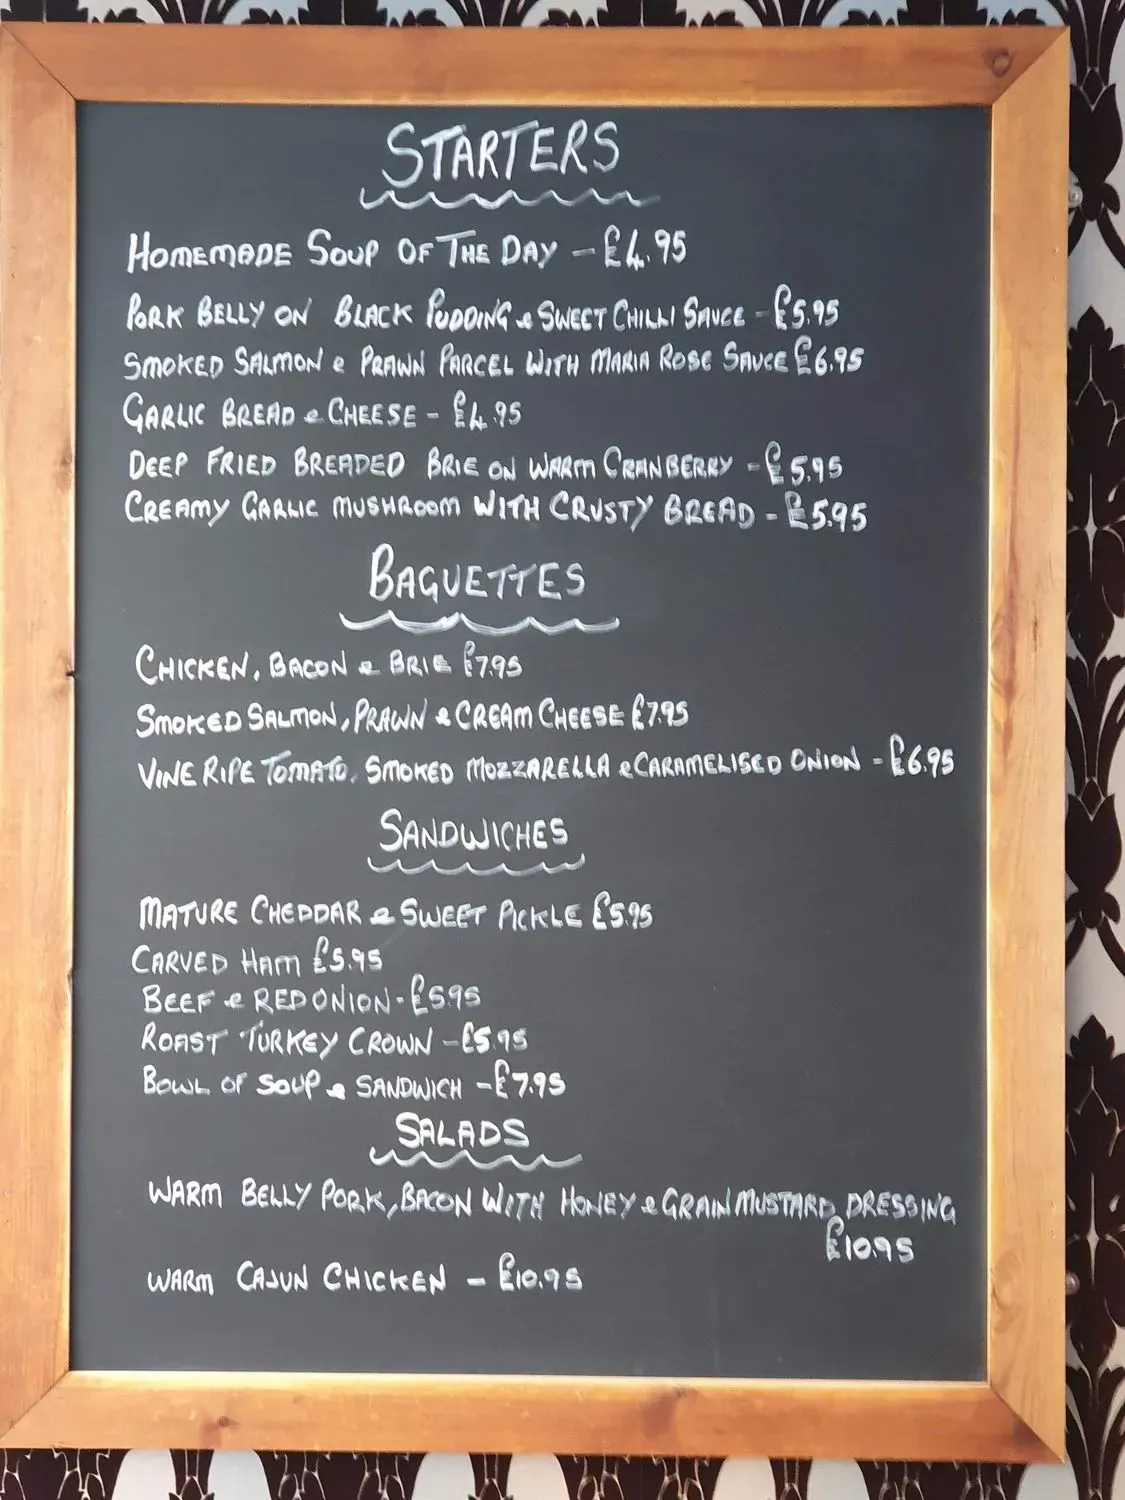 STARTERS
HOMEMADE SOUP OF THE DAY - £4.95
PORK BELLY ON BLACK PUDDING & SWEET CHILLI SAUCE - £5.95
SMOKED SALMON & PRAWN PARCEL WITH MARIA ROSE SAUCE £6.95
GARLIC BREAD & CHEESE - £4.95
DEEP FRIED BREADED BRIE ON WARM CRANBERRY - £5.95
CREAMY GARLIC MUSHROOM WITH CRUSTY BREAD - £5.95
BAGUETTES
CHICKEN, BACON & BRIE £7.95
SMOKED SALMON, PRAWN & CREAM CHEESE £7.95
VINE RIPE TOMATO, SMOKED MOZZARELLA & CARAMELISED ONION - £6.95
SANDWICHES
MATURE CHEDDAR & SWEET PICKLE £5.95
CARVED HAM £5.95
BEEF & RED ONION - £5.95
ROAST TURKEY CROWN - £5.95
BOWL OF SOUP & SANDWICH - £7.95
SALADS
WARM BELLY PORK, BACON WITH HONEY & GRAIN MUSTARD DRESSING
£10.95
WARM CAJUN CHICKEN - £10.95